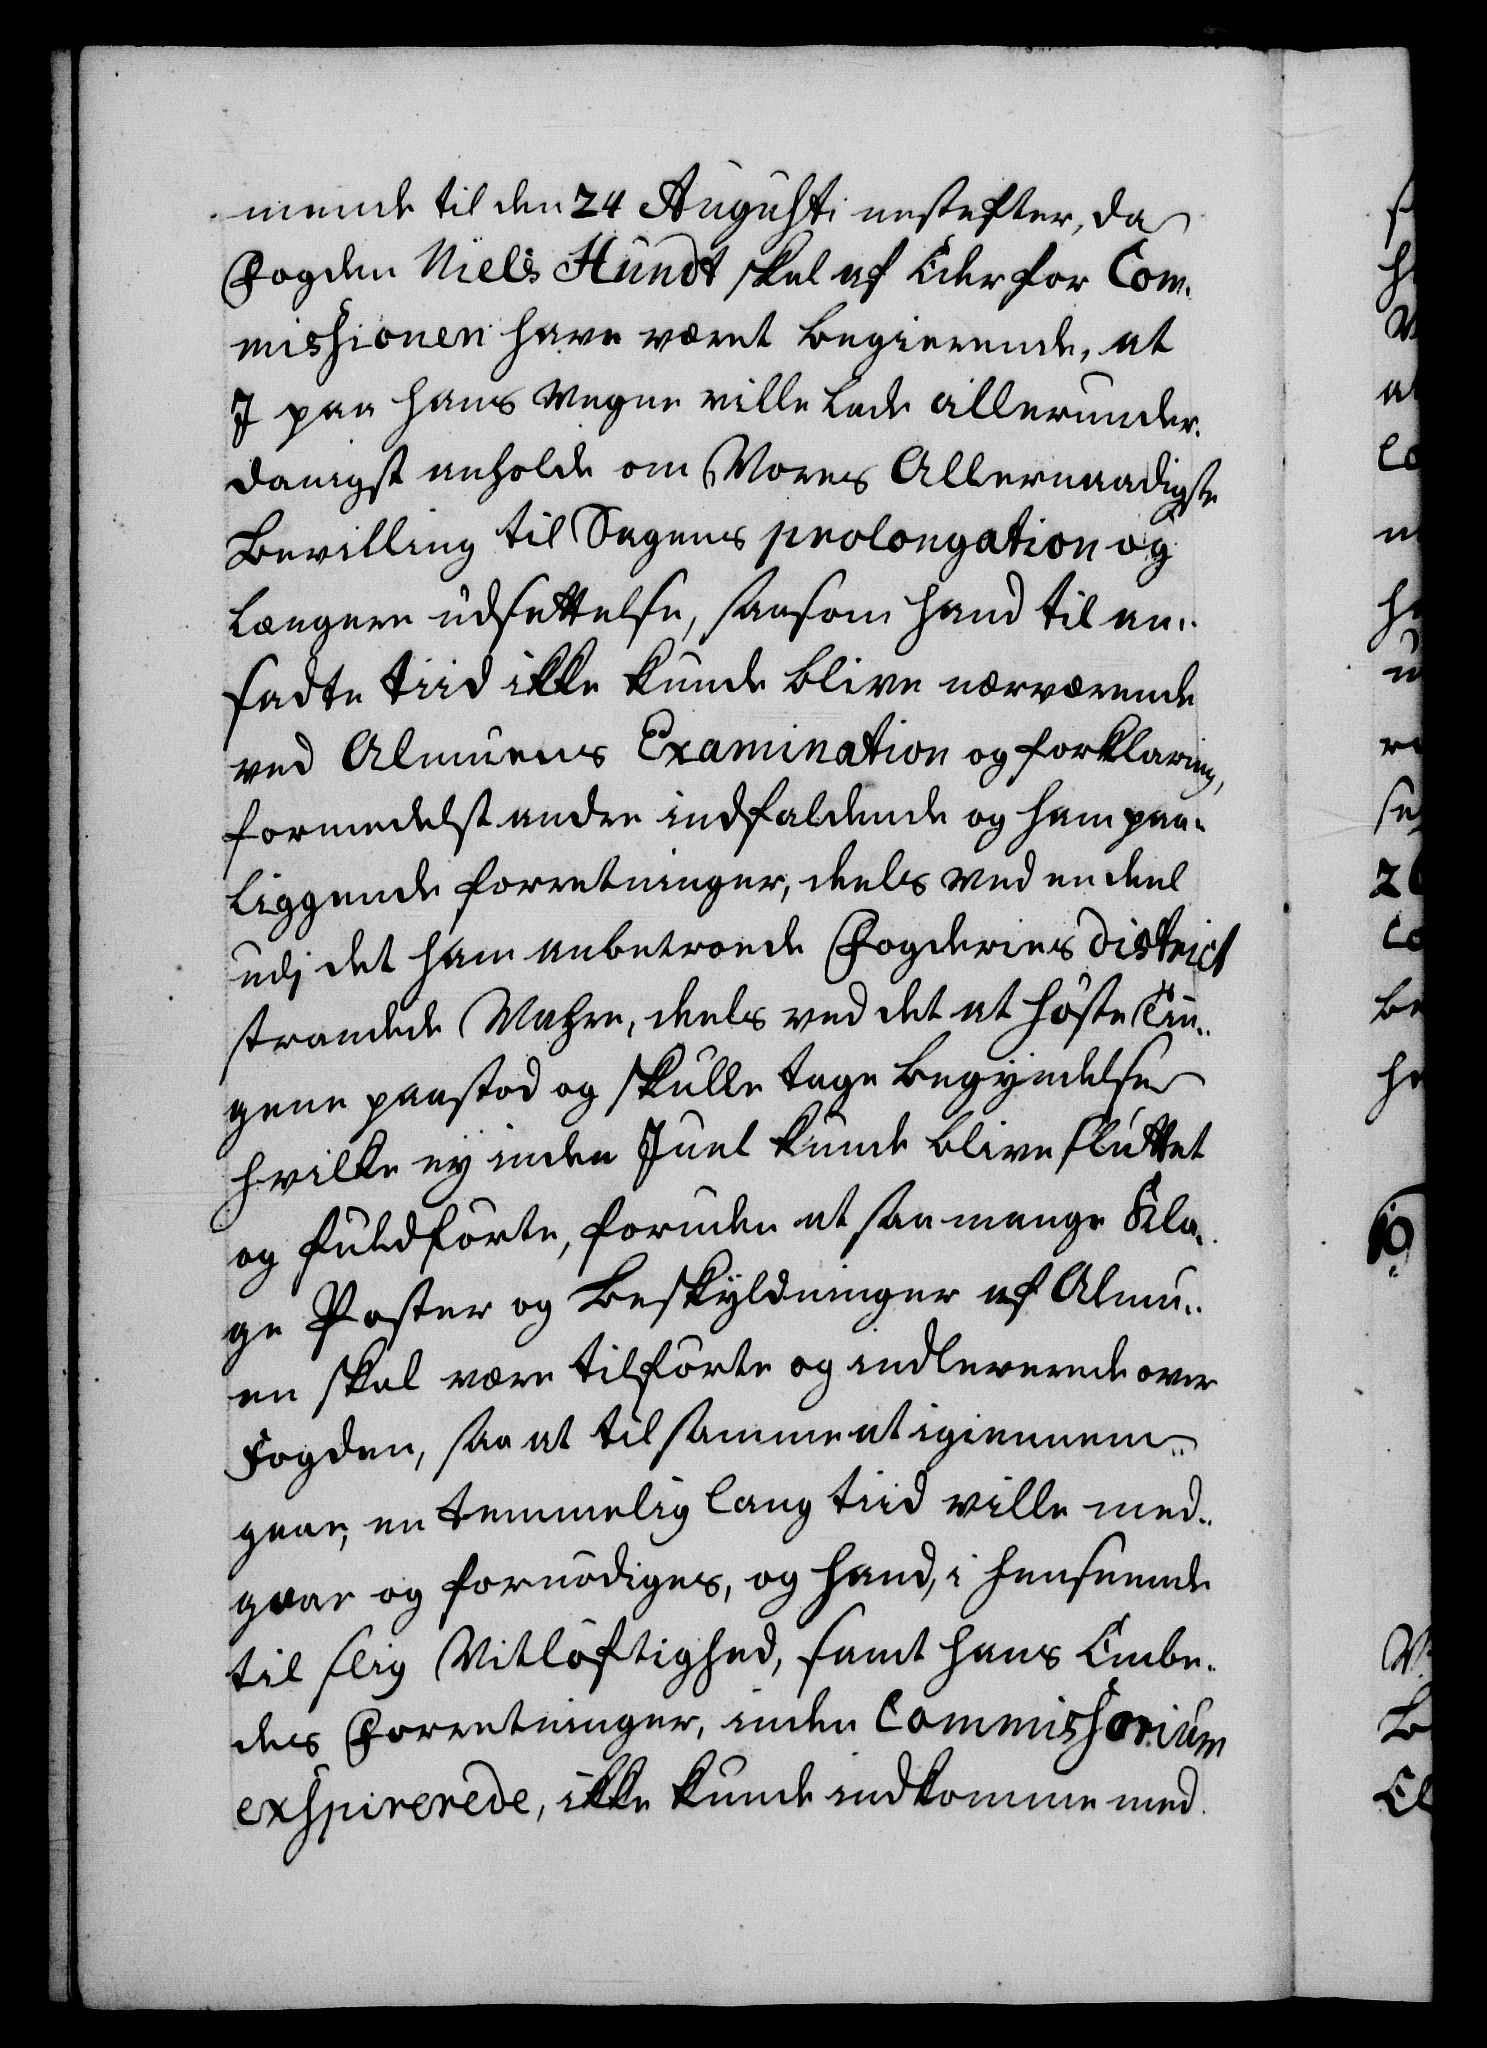 mende til den 24 Augusti nestefter, da
Fogden Niels Hundt skal af Eder for Com-
missionen have været begierende, at
I paa hans vegne ville lade allerunder-
danigst anholde om Vores Allernaadigste
Bevilling til Sagens prolongation og
længere udsettelse, saasom hand til an-
sadte tiid ikke kunde blive nærværende
ved Almuens Examination og forklaring,
formedelst andre indfaldende og ham paa-
liggende forretninger, deels ved en deel
udj det ham anbetroede Fogderies district
strandede Wahre, deels ved det at höste Tin-
gene paastod og skulle tage begyndelse
hvilke ey inden Juel kunde blive sluttet
og fuldförte, foruden at saa mange Kla-
ge Poster og Beskyldninger af Almu-
en skal være tilförte og indleverede over
Fogden, saa at til samme at igiennem-
gaae, en temmelig lang tiid ville med-
gaae og fornödiges, og hand, i henseende
til slig Vitlöftighed, samt hans Embe-
des Forretninger, inden Commissorium
exspirerede, ikke kunde indkomme med